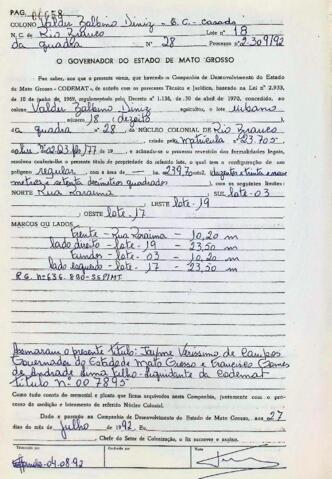 PAG.
COLONO Valdir Balbino Diniz - E.C. - Casado
N. C. de Rio Branco Lote nº 18
da quadra Nº 28 Processo nº 2.309/92
O GOVERNADOR DO ESTADO DE MATO GROSSO
Faz saber, aos que o presente virem, que havendo a Companhia de Desenvolvimento do Estado
de Mato Grosso - CODEMAT -, de acordo com os pareceres Técnico e Jurídico, baseado na Lei nº 2.933,
de 10 de junho de 1969, regulamentada pelo Decreto nº 1.138, de 30 de abril de 1970, concedido, ao colono
Valdir Balbino Diniz agricultor, o lote urbano
número 18 (dezoito)
da quadra nº 28 do NÚCLEO COLONIAL DE Rio Branco
criado pela Matrícula nº 23.705
de 19 e achando-se o processo revestido das formalidades legais,
resolveu conferir-lhe o presente título de propriedade do referido lote, o qual tem a configuração de um
polígono regular com a área de ha 239,70 m2. duzentos e trinta e nove
metros e setenta decímetros quadrados com os seguintes limites:
NORTE Rua Roraima SUL lote-03
LESTE lote-19
OESTE lote-17
MARCOS OU LADOS
frente - Rua Roraima - 10,20 m
lado direito - lote - 19 - 23,50 m
fundos - lote - 03 - 10,20 m
lado esquerdo - lote - 17 - 23,50 m
R.G. nº 636.880-SSP/MT
Assinaram o presente título: Jayme Veríssimo de Campos
Governador do Estado de Mato Grosso e Francisco Gomes
de Andrade Lima Filho - Liquidante da Codemat
Título Nº 007895
Tudo como consta do memorial e planta que ficam arquivados nesta Companhia, juntamente com o pro-
cesso de medição e loteamento do referido Núcleo Colonial.
Dado e passado na Companhia de Desenvolvimento do Estado de Mato Grosso, aos 27
dias do mês de julho de 1992. Eu
Chefe do Setor de Colonização, o fiz escrever e assino.
04.08.92